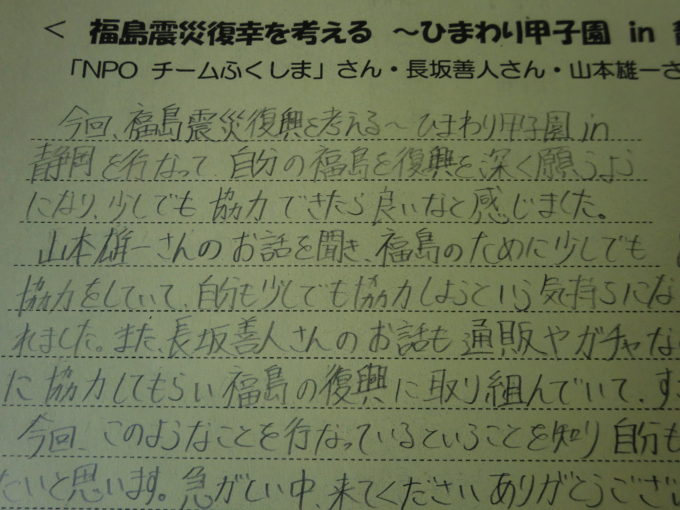 < 福島震災復幸を考える ～ひまわり甲子園 in
「NPO チームふくしま」さん・長坂善人さん・山本雄一さ
今回、福島震災復興を考える～ひまわり甲子園in
静岡を行なって 自分の福島を復興を深く願うよう
になり、少しでも 協力 できたら良いなと感じました。
山本雄一さんのお話を聞き、福島のために少しでも
協力をしていて、自分も少しでも協力しようという気持ちにな
れました。また、長坂善人さんのお話も 通販やガチャな
に協力してもらい福島の復興に取り組んでいて、す
今回、このようなことを行なっているということを知り 自分も
たいと思います。急がしい中、来てください ありがとうござい